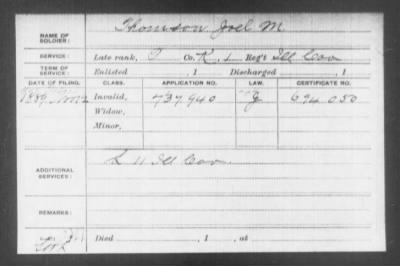 NAME OF SOLDIER: Thomson, Joel M.
SERVICE: Late rank, Co. K, 1 Reg't Ill Cav
TERM OF SERVICE: Enlisted , 1 Discharged , 1
DATE OF FILING. CLASS. APPLICATION NO. LAW. CERTIFICATE NO.
1889 Invalid, 737940 G 694050
Widow,
Minor,
ADDITIONAL SERVICES: L 11 Ill Cav.
REMARKS:
Died , 1 , at